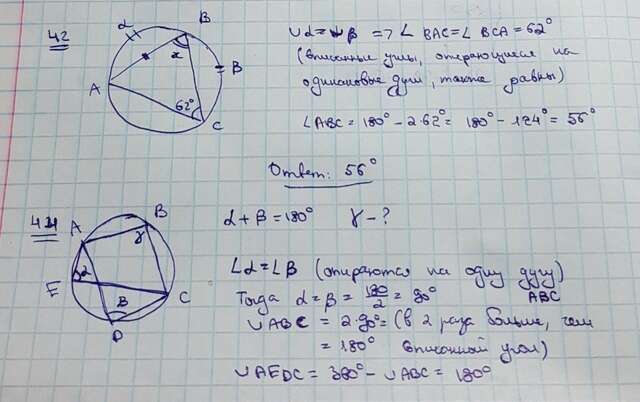 42
α
B
x
β
A
62°
C
∪α = ∪β => ∠ BAC = ∠ BCA = 62°
(вписанные углы, опирающиеся на
одинаковые дуги, также равны)
∠ABC = 180° - 2·62° = 180° - 124° = 56°
Ответ: 56°
44
A
B
γ
α
E
β
C
D
α + β = 180° γ - ?
∠α = ∠β (опираются на одну дугу)
ABC
Тогда α = β = 180/2 = 90°
∪ABC = 2·90° = (в 2 раза больше, чем
= 180° вписанный угол)
∪AEDC = 380° - ∪ABC = 180°